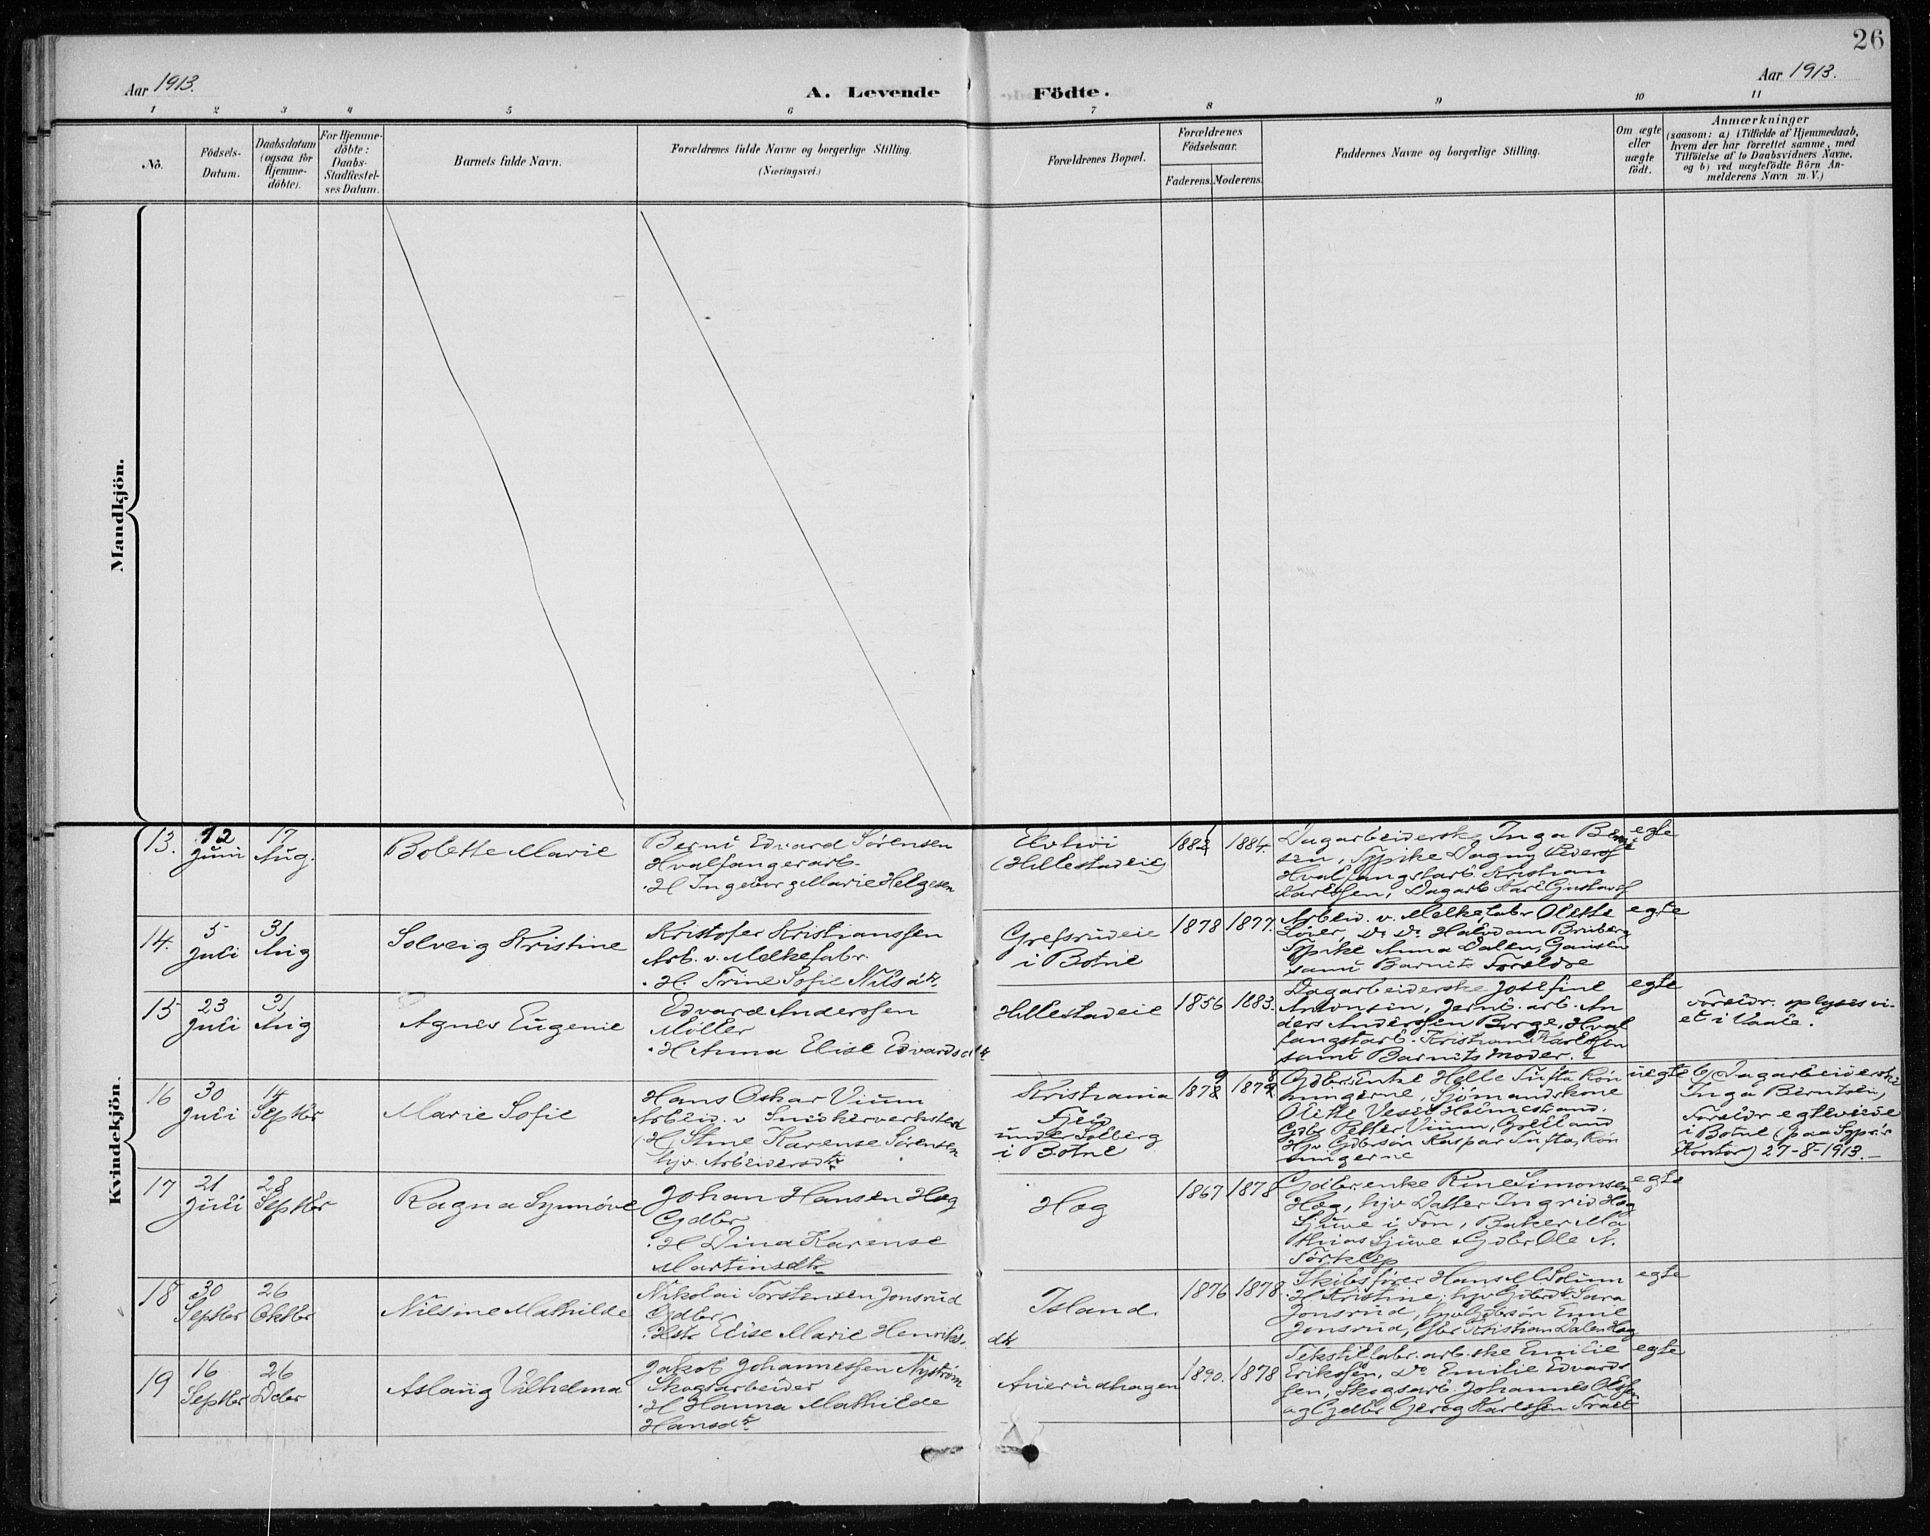 26
Aar 1913.
A. Levende
Födte.
Aar 1913.
1 2 3 4 5 6 7 8 9 10 11
No.
Födsels-
Datum.
Daabsdatum
(ogsaa for
Hjemme-
döbte).
For Hjemme-
döbte:
Daabs-
Stadfæstel-
ses Datum.
Barnets fulde Navn.
Forældrenes fulde Navne og borgerlige Stilling.
(Næringsvei.)
Forældrenes Bopæl.
Forældrenes
Födselsaar.
Faderens.
Moderens.
Faddernes Navne og borgerlige Stilling.
Om ægte
eller
uægte
födt.
Anmærkninger
(saasom: a) i Tilfælde af Hjemmedaab,
hvem der har forrettet samme, med
Tilföielse af to Daabsvidners Navne,
og b) ved uægtefödte Börn An-
melderens Navn m. V.)
Mandkjön.
Kvindekjön.
13.
12
Juni
17
Aug.
Bolette Marie
Berni Edvard Sørensen
Hvalfangerarb.
. H. Ingeborg Marie Helgesen
(Hillestadeie)
1884.
Dagarbeiderske Inga Bernt
sen, Tjpike Dagny Pederss
Hvalfangstarb. Kristian
Karlssen, Dagarb. Karl Gustavss
egte
14.
5
Juli
31
Aug
Solveig Kristine
Kristofer Kristianssen
Arb. v. Melkefabr.
. H. Trine Sofie Nilsdtr.
Grefsrudeie
i Botne
1878
1877.
Arbeid. v. Melkefabr Olette
Løier, Do. Do. Halvdan Bruberg
Tjpike Anna Dalen,
samt Barnets Forældre
egte
15
23
Juli
31
Aug
Agnes Eugenie
Edvard Anderssen
Møller
. H. Anna Elise Edvardsdtr.
Hillestadeie
1856
1883.
Dagarbeiderske Josefine
Antonsen, Jernb. arb. An
ders Anderssen Borge, Hval
fangstarb. Kristian Karlssen
samt Barnets Moder.
egte
Forældr. oplyses vi-
et i Vaale.
16
30
Juli
14
Septbr
Marie Sofie
Hans Oskar Vium
Arbeid. v. Snidkerverksted
(H. Stine Karense Sørensen
hjv. Arbeidersdtr.
Kristiania
under Solberg
i Botne
Gdbr.enke Helle Tufta Røn
ningerne, Sjømandskone
Olette Holmestrand.
Gdbr Petter Vium,
Hjv Gdbrsøn Kaspar Tufta, Røn
ningerne
uegte
b) Dagarbeiderske
Inga Berntsen,
Forældr egteviede
i Botne (paa Sgpr's
Kontor) 27-8-1913.
17
21
Juli
28
Septbr
Ragna Synnøve
Johan Hansen Høg
Gdbr
. H. Dina Karense
Martinsdtr
Høg
1867
1878
Gdbr.enke Rine Simonsen
Høg, hjv Datter Ingrid Høg
Sjuve i Fon, Baker Ma
thias Sjuve & Gdbr Ole A.
egte
18
30
Septbr
26
Oktbr
Nilsine Mathilde
Nikolai Torstensen Jonsrud
Gdbr
. Hstr. Elise Marie Henriks.
dtr.
Island.
1876
1878.
Skibsfører Hans M. Solum
. H Kristine, hjv Gdbrdtr Sara
Jonsrud, hjv Gdbrsøn Emil
Jonsrud, Gbr. Kristian Dalen Høg
egte
19
16
Septbr
26
Decbr
Aslaug Vilhelma
Jakob Johannessen Nystrøm
Skogsarbeider
. H Hanna Mathilde
Hansdtr.
Auerudhagen
1890.
1878
Tekstilfabr. arb.ske Emilie
Eriksen, Do Emilie Edvard
sen, Skogsarb. Johannes Olss
og Gdbr Georg Karlssen
egte